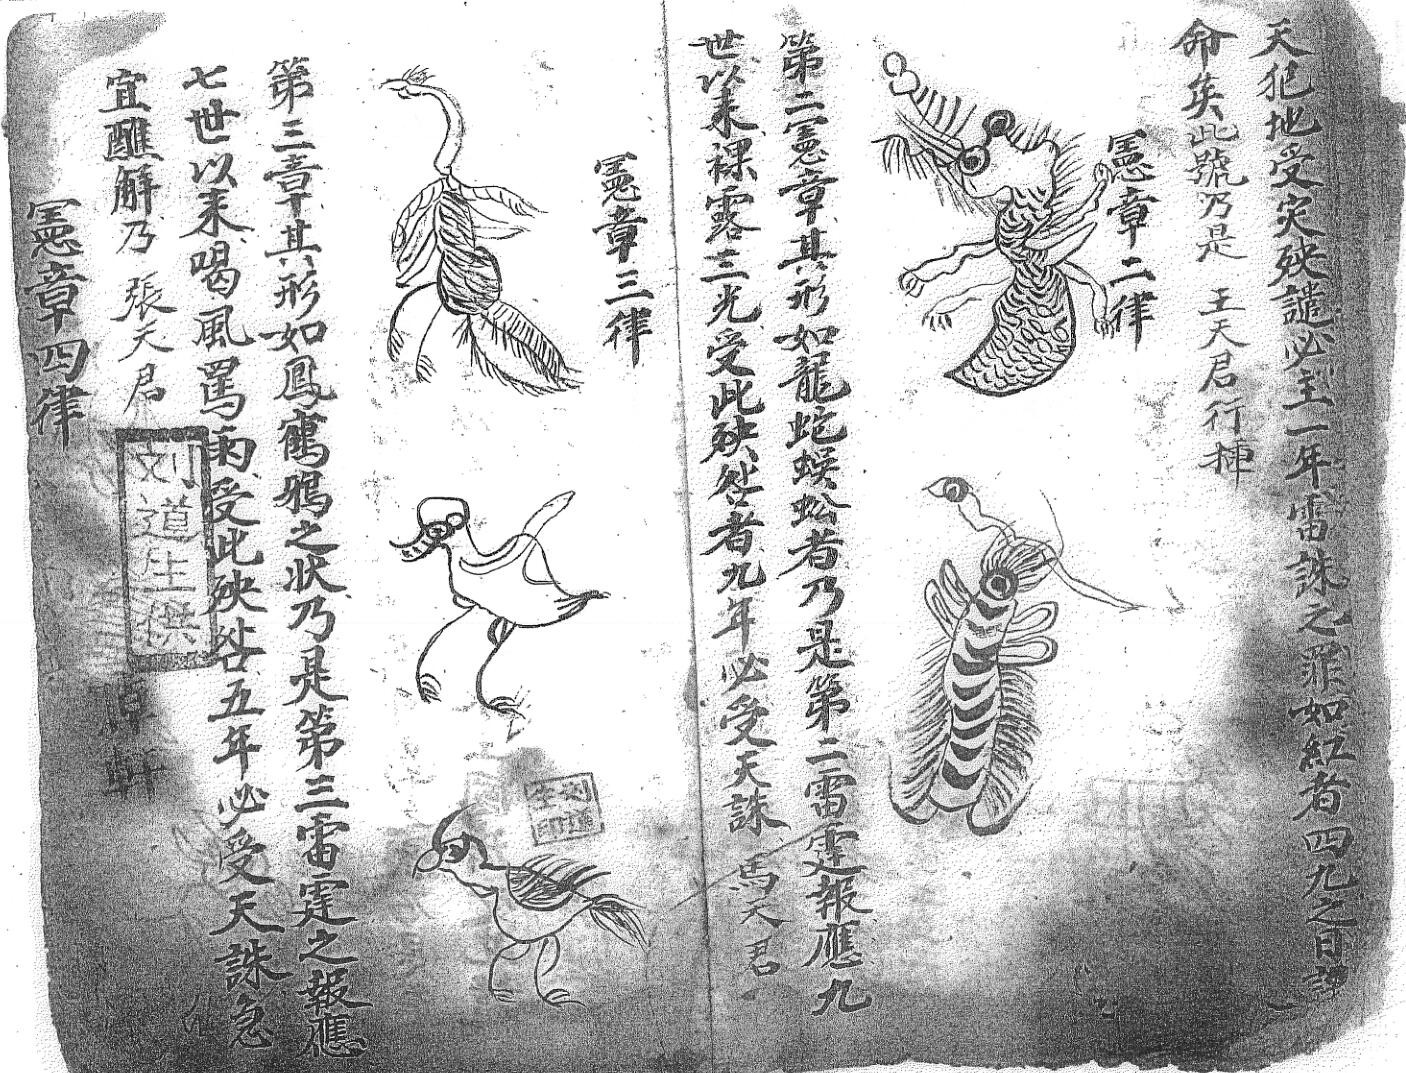 天犯地受灾殃譴必主一年雷誅之罪如紅者四九之日誅
命矣此號乃是 王天君行捶
憲章二律
第二憲章其形如龍蛇蜈蚣者乃是第二雷霆報應九
世以来裸露三光受此殃咎者九年必受天誅 馬天君
憲章三律
第三章其形如鳳鶴鴉之状乃是第三雷霆之報應
七世以来喝風罵雨受此殃咎五年必受天誅急
宜醮解乃 張天君
刘道生供
刘道生印
憲章四律